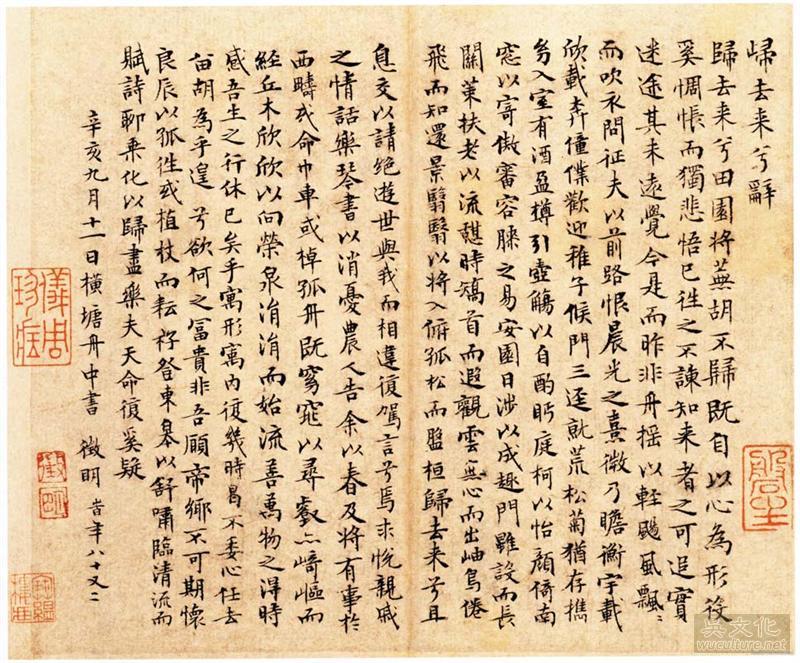 歸去来兮辭
歸去来兮田園将蕪胡不歸既自以心為形役
奚惆悵而獨悲悟已往之不諫知来者之可追實
迷途其未遠覺今是而昨非舟摇以輕颺風飄〻
而吹衣問征夫以前路恨晨光之熹微乃瞻衡宇載
欣載奔僮僕歡迎稚子候門三逕就荒松菊猶存携
幼入室有酒盈樽引壺觴以自酌眄庭柯以怡顔倚南
窓以寄傲審容膝之易安園日涉以成趣門雖設而長
關策扶老以流憩時矯首而遐觀雲無心而出岫鳥倦
飛而知還景翳翳以将入俯孤松而盤桓歸去来兮且
息交以請絶遊世與我而相違復駕言兮焉求悅親戚
之情話樂琴書以消憂農人告余以春及将有事於
西疇或命巾車或棹孤舟既窈窕以尋壑亦崎嶇而
經丘木欣欣以向榮泉涓涓而始流善萬物之得時
感吾生之行休已矣乎寓形寓内復幾時曷不委心任去
留胡為乎遑兮欲何之冨貴非吾願帝鄉不可期懷
良辰以孤往或植杖而耘耔登東皋以舒嘯臨清流而
賦詩聊乗化以歸盡樂夫天命復奚疑
辛亥九月十一日横塘舟中書 徵明 旹年八十又二
徵明
吳文化
www.wuculture.net